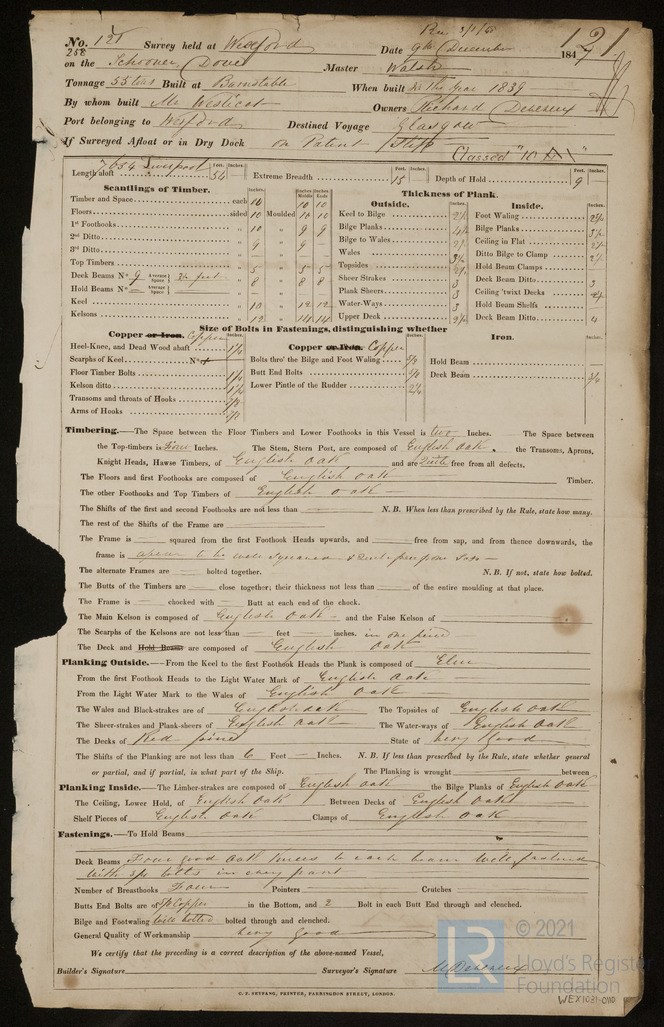 No. 121 Survey held at Wexford Date 9th December 1847 121
258
on the Schooner Dove Master Walsh
Tonnage 55 tons Built at Barnstable When built in the year 1839
By whom built Mr Westicot Owners Richard Devereux
Port belonging to Wexford Destined Voyage Glasgow
If Surveyed Afloat or in Dry Dock on Patent Slip
Classed "10 A"
7654 Liverpool
Length aloft 54 Extreme Breadth 15 Depth of Hold 9
Feet. Inches.
Scantlings of Timber.
Timber and Space each 10 10 10
Floors sided 10 Moulded 10 10
1st Foothooks " 10 " 9 9
2nd Ditto " 9 " 9
3rd Ditto
Top Timbers " 5 " 5 5
Deck Beams No. 9 Average Space 3½ feet " 8 " 8 8
Hold Beams No. Average Space
Keel " 10 " 12 12
Kelsons " 12 " 14 14
Thickness of Plank.
Outside.
Keel to Bilge
Bilge Planks
Bilge to Wales
Wales
Topsides
Sheer Strakes 3
Plank Sheers 3
Water-Ways 3
Upper Deck
Inside.
Foot Waling
Bilge Planks
Ceiling in Flat
Ditto Bilge to Clamp
Hold Beam Clamps
Deck Beam Ditto 3
Ceiling 'twixt Decks
Hold Beam Shelfs
Deck Beam Ditto 4
Size of Bolts in Fastenings, distinguishing whether
Copper or Iron. Copper
Heel-Knee, and Dead Wood abaft
Scarphs of Keel No.
Floor Timber Bolts
Kelson ditto
Transoms and throats of Hooks
Arms of Hooks
Copper or Iron. Copper
Bolts thro' the Bilge and Foot Waling
Butt End Bolts
Lower Pintle of the Rudder
Iron.
Hold Beam
Deck Beam
Timbering.—The Space between the Floor Timbers and Lower Foothooks in this Vessel is two Inches. The Space between
the Top-timbers is Four Inches. The Stem, Stern Post, are composed of English Oak. the Transoms, Aprons,
Knight Heads, Hawse Timbers, of English Oak and are quite free from all defects.
The Floors and first Foothooks are composed of English Oak Timber.
The other Foothooks and Top Timbers of English Oak
The Shifts of the first and second Foothooks are not less than N.B. When less than prescribed by the Rule, state how many.
The rest of the Shifts of the Frame are
The Frame is squared from the first Foothook Heads upwards, and free from sap, and from thence downwards, the
frame is appear to be well squared & quite free from Sap
The alternate Frames are bolted together. N.B. If not, state how bolted.
The Butts of the Timbers are close together; their thickness not less than of the entire moulding at that place.
The Frame is chocked with Butt at each end of the chock.
The Main Kelson is composed of English Oak and the False Kelson of
The Scarphs of the Kelsons are not less than feet inches. in one piece
The Deck and Hold Beams are composed of English Oak
Planking Outside.—From the Keel to the first Foothook Heads the Plank is composed of Elm
From the first Foothook Heads to the Light Water Mark of English Oak
From the Light Water Mark to the Wales of English Oak
The Wales and Black-strakes are of English Oak The Topsides of English Oak
The Sheer-strakes and Plank-sheers of English Oak The Water-ways of English Oak
The Decks of Red pine State of very Good
The Shifts of the Planking are not less than 6 Feet Inches. N.B. If less than prescribed by the Rule, state whether general
or partial, and if partial, in what part of the Ship. The Planking is wrought between
Planking Inside.—The Limber-strakes are composed of English Oak the Bilge Planks of English Oak
The Ceiling, Lower Hold, of English Oak Between Decks of English Oak
Shelf Pieces of English Oak Clamps of English Oak
Fastenings.—To Hold Beams
Deck Beams Four good Oak Knees to each beam well fastened
with bolts in every part
Number of Breasthooks Four Pointers Crutches
Butts End Bolts are of Copper in the Bottom, and 2 Bolt in each Butt End through and clenched.
Bilge and Footwaling well bolted bolted through and clenched.
General Quality of Workmanship very good
We certify that the preceding is a correct description of the above-named Vessel,
Builder's Signature Surveyor's Signature M Devereux
C. F. SEYFANG, PRINTER, FARRINGDON STREET, LONDON.
LR © 2021
Lloyd's Register
Foundation
WEX1031-0110